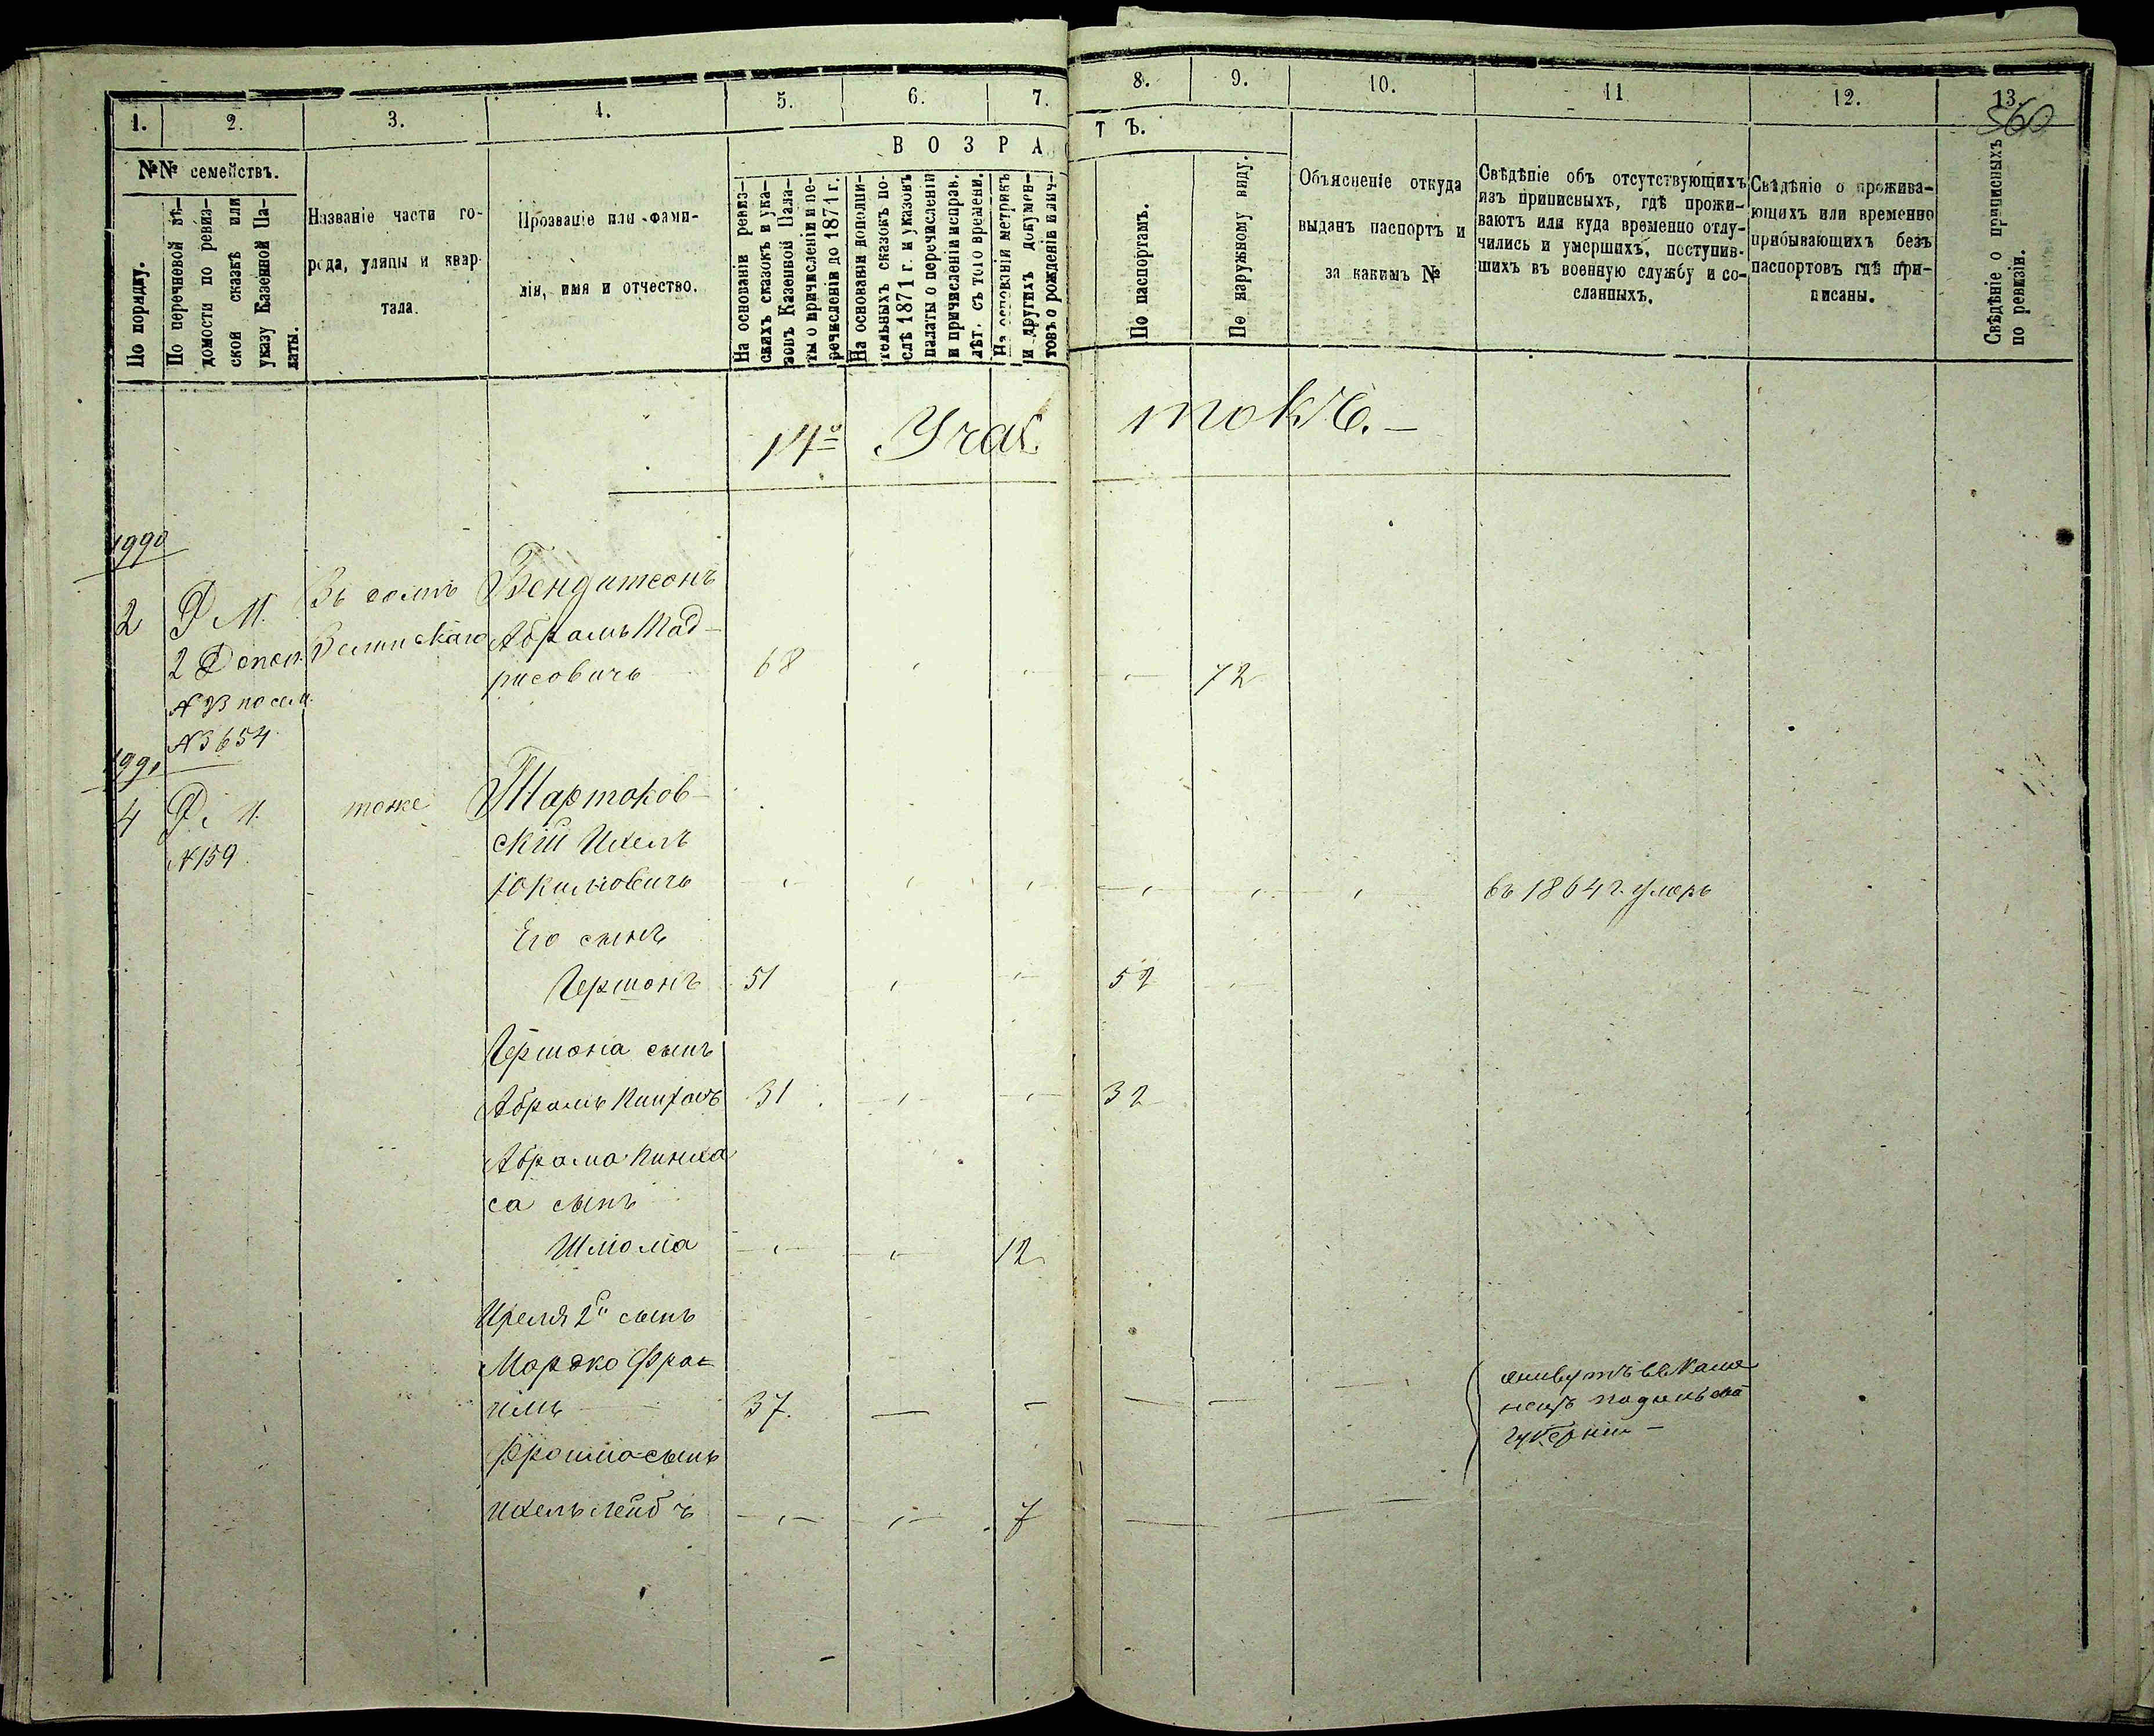 1. 2. 3. 4. 5. 6. 7. 8. 9. 10. 11 12. 13.
560
№№ семействъ.
По порядку.
По перечневой вѣ-
домости по ревиз-
ской сказкѣ или
указу Казенной Па-
латы.
Названіе части го-
рода, улицы и квар-
тала.
Прозваніе или фами-
лія, имя и отчество.
ВОЗРАС
ТЪ.
На основаніи ревиз-
скихъ сказокъ и ука-
зовъ Казенной Пала-
ты о причисленіи и пе-
речисленіи до 1871 г.
На основаніи дополни-
тельныхъ сказокъ по-
слѣ 1871 г. и указовъ
палаты о перечисленіи
и причисленіи исправ.
лѣт. съ того времени.
На основаніи метрикъ
и другихъ докумен-
товъ о рожденіи
По паспортамъ.
По наружному виду.
Объясненіе откуда
выданъ паспортъ и
за какимъ №
Свѣдѣніе объ отсутствующихъ
изъ приписныхъ, гдѣ прожи-
ваютъ или куда временно отлу-
чились и умершихъ, поступив-
шихъ въ военную службу и со-
сланныхъ.
Свѣдѣніе о прожива-
ющихъ или временно
прибывающихъ безъ
паспортовъ гдѣ при-
писаны.
Свѣдѣніе о приписныхъ
по ревизіи.
14й Учас токъ.
1990
2 Р. М. Въ домѣ Бендитсонъ
2 Допол. Абрамъ
рисовичъ 68 72
по сем.
№ 3654
1991
4 Р. М. тоже Тартаков-
№ 159 скій Ихель
Іокимовичъ въ 1864 г. умеръ
Его сынъ
Гершонъ 51 52
Гершона сынъ
Абрамъ Пинхасъ 31 32
Абрама Пинха
са сынъ
Шліома 12
Ихеля 2й сынъ
Мордко Фро
имъ 37. живутъ въ Каме
нецъ подольской
губерніи
Фроима сынъ
Ихель Лейбъ 7